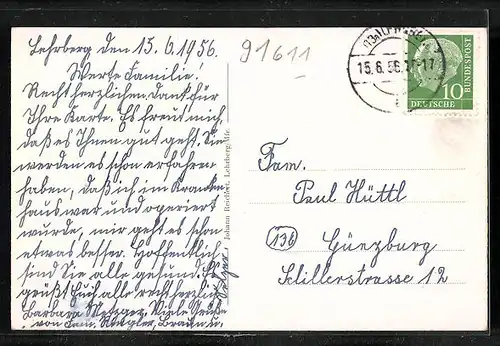 Lehrberg, den 15.6.1956.
Werte Familie!
Recht herzlichen Dank für
Ihre Karte. Es freut mich,
daß es Ihnen gut geht. Sie
werden es schon erfahren
haben, daß ich im Kranken
haus war und operiert
wurde, mir geht es schon
etwas besser. Hoffentlich
sind Sie alle gesund. Es
grüßt Euch alle recht herzlich
Barbara Metzger. Viele Grüße
von Fam.
91611
Johann Reichert, Lehrberg/Mfr.
15.6.56.
10
DEUTSCHE
BUNDESPOST
Fam.
Paul Hüttl
(13b) Günzburg
Schillerstrasse 12